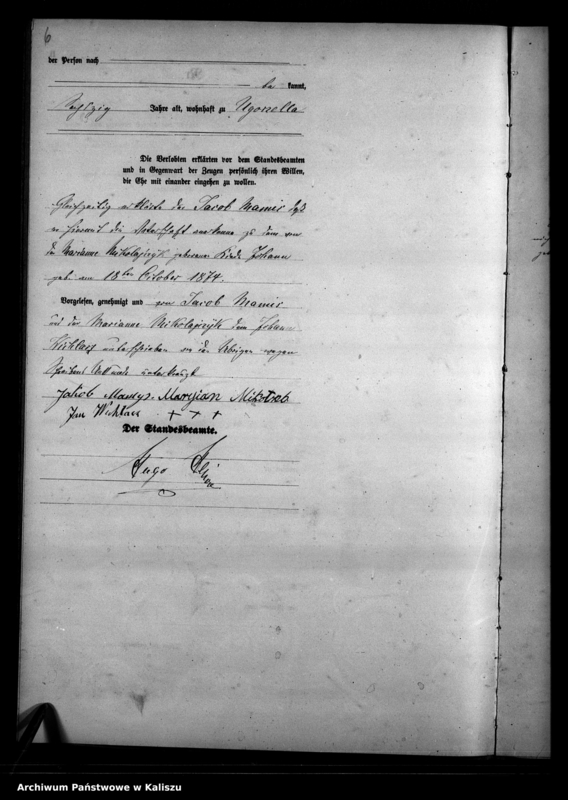 6
der Person nach
be kannt,
Sechszig Jahre alt, wohnhaft zu
Die Verlobten erklärten vor dem Standesbeamten
und in Gegenwart der Zeugen persönlich ihren Willen,
die Ehe mit einander eingehen zu wollen.
Gleichzeitig erklärte der Jacob daß
er hiermit die Vaterschaft anerkenne zu dem von
der Marianne Mikolajczyk geborenen Kinde Johann
geb am 18ten October 1874.
Vorgelesen, genehmigt und von Jacob
und der Marianne Mikolajczyk dem Johann
unterschrieben von den Uebrigen wegen
Schreibens unterkreuzt
Jakob Maryian
+ + +
Der Standesbeamte.
Hugo
Archiwum Państwowe w Kaliszu